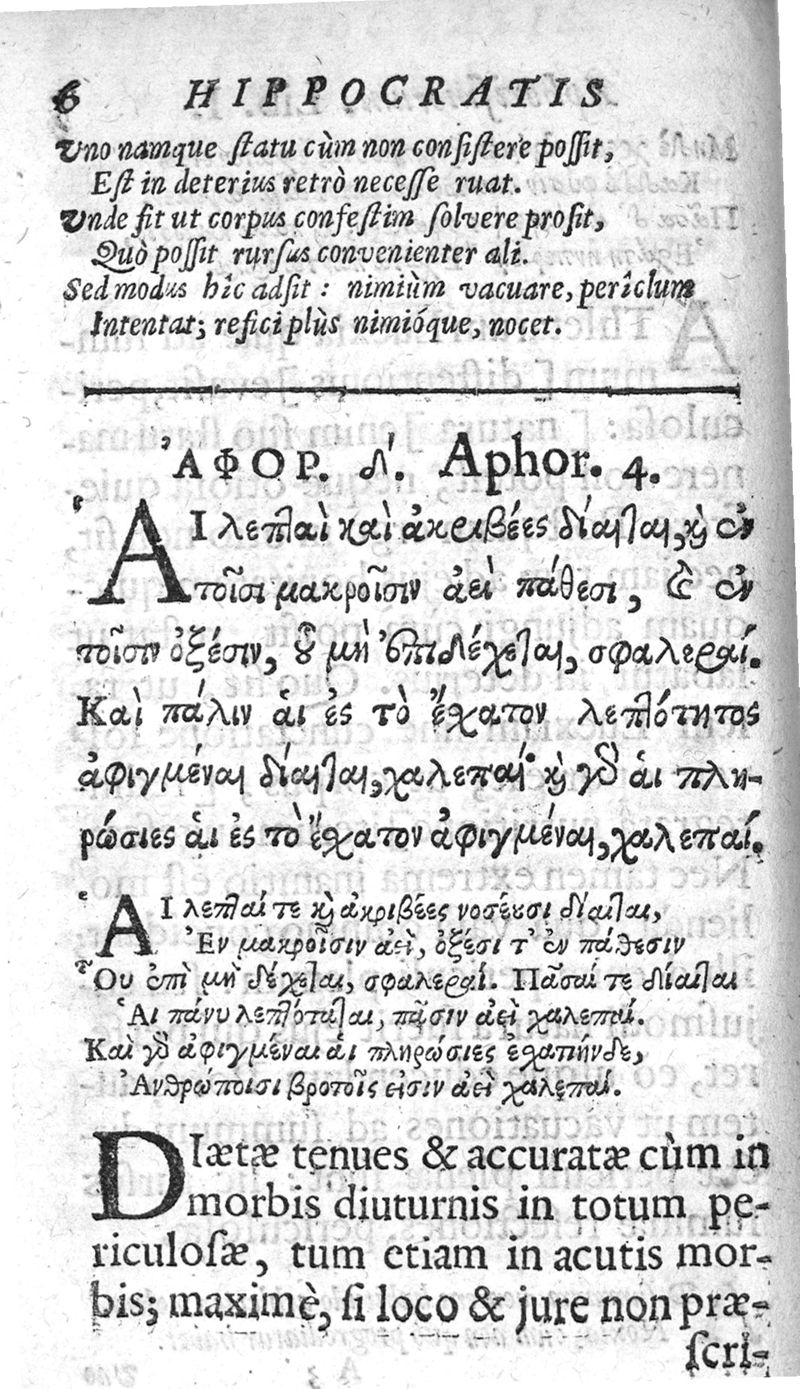 6 HIPPOCRATIS
Uno namque ſtatu cùm non conſiſtere poſſit,
Eſt in deterius retrò neceſſe ruat.
Unde fit ut corpus confeſtim ſolvere proſit,
Quò poſſit rurſus convenienter ali.
Sed modus hîc adſit: nimiùm vacuare, perîclum
Intentat; refici plùs nimióque, nocet.
ἈΦΟΡ. δ'. Aphor. 4.
ἉΙ λεπταὶ καὶ ἀκριβέες δίαιται, καὶ ἐν
τοῖσι μακροῖσιν ἀεὶ πάθεσι, καὶ ἐν
τοῖσιν ὀξέσιν, οὗ μὴ ἐπιδέχεται, σφαλεραί.
Καὶ πάλιν ἁι ἐς τὸ ἔσχατον λεπτότητος
ἀφιγμέναι δίαιται, χαλεπαί· καὶ γὰρ ἁι πλη-
ρώσιες ἁι ἐς τὸ ἔσχατον ἀφιγμέναι, χαλεπαί.
ἉΙ λεπταί τε καὶ ἀκριβέες νοσέουσι δίαιται,
Ἐν μακροῖσιν ἀεὶ, ὀξέσι τ' ἐν πάθεσιν
Οὗ ἐπὶ μὴ δέχεται, σφαλεραί. Πᾶσαί τε δίαιται
Ἁι πάνυ λεπτόταται, πᾶσιν ἀεὶ χαλεπαί.
Καὶ γὰρ ἀφιγμέναι ἁι πληρώσιες ἐσχαπήνδε,
Ἀνθρώποισι βροτοῖς εἰσιν ἀεὶ χαλεπαί.
DIætæ tenues & accuratæ cùm in
morbis diuturnis in totum pe-
riculoſæ, tum etiam in acutis mor-
bis; maximè, ſi loco & jure non præ-
ſcri-